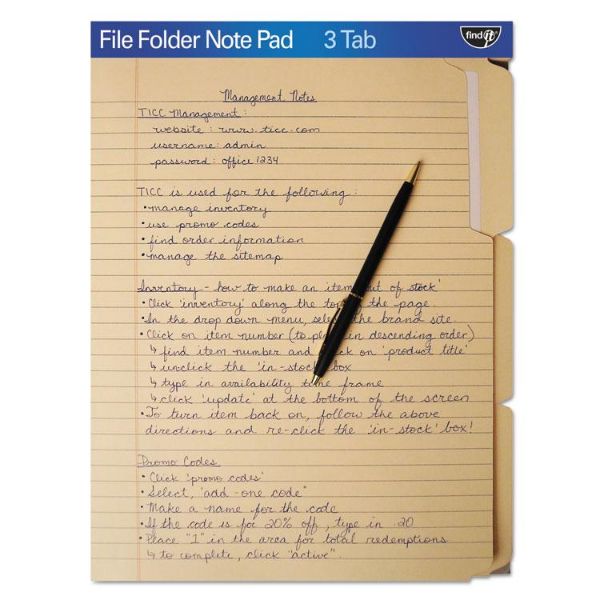 File Folder Note Pad 3 Tab find it
Management Notes
TICC Management:
website: www.ticc.com
username: admin
password: office1234
TICC is used for the following:
• manage inventory
• use promo codes
• find order information
• manage the sitemap
Inventory - how to make an item out of stock'
• Click 'inventory' along the top the page.
• In the drop down menu, select the brand site
• Click on item number (to in descending order)
↳ find item number and on 'product title'
↳ unclick the 'in-stock' box
↳ type in availability time frame
↳ click 'update' at the bottom of the screen
• To turn item back on, follow the above
directions and re-click the 'in-stock' box!
Promo Codes
• Click 'promo codes'
• Select, "add-one code"
• Make a name for the code
• If the code is for 20% off, type in .20
• Place "1" in the area for total redemptions
↳ to complete, click "active".